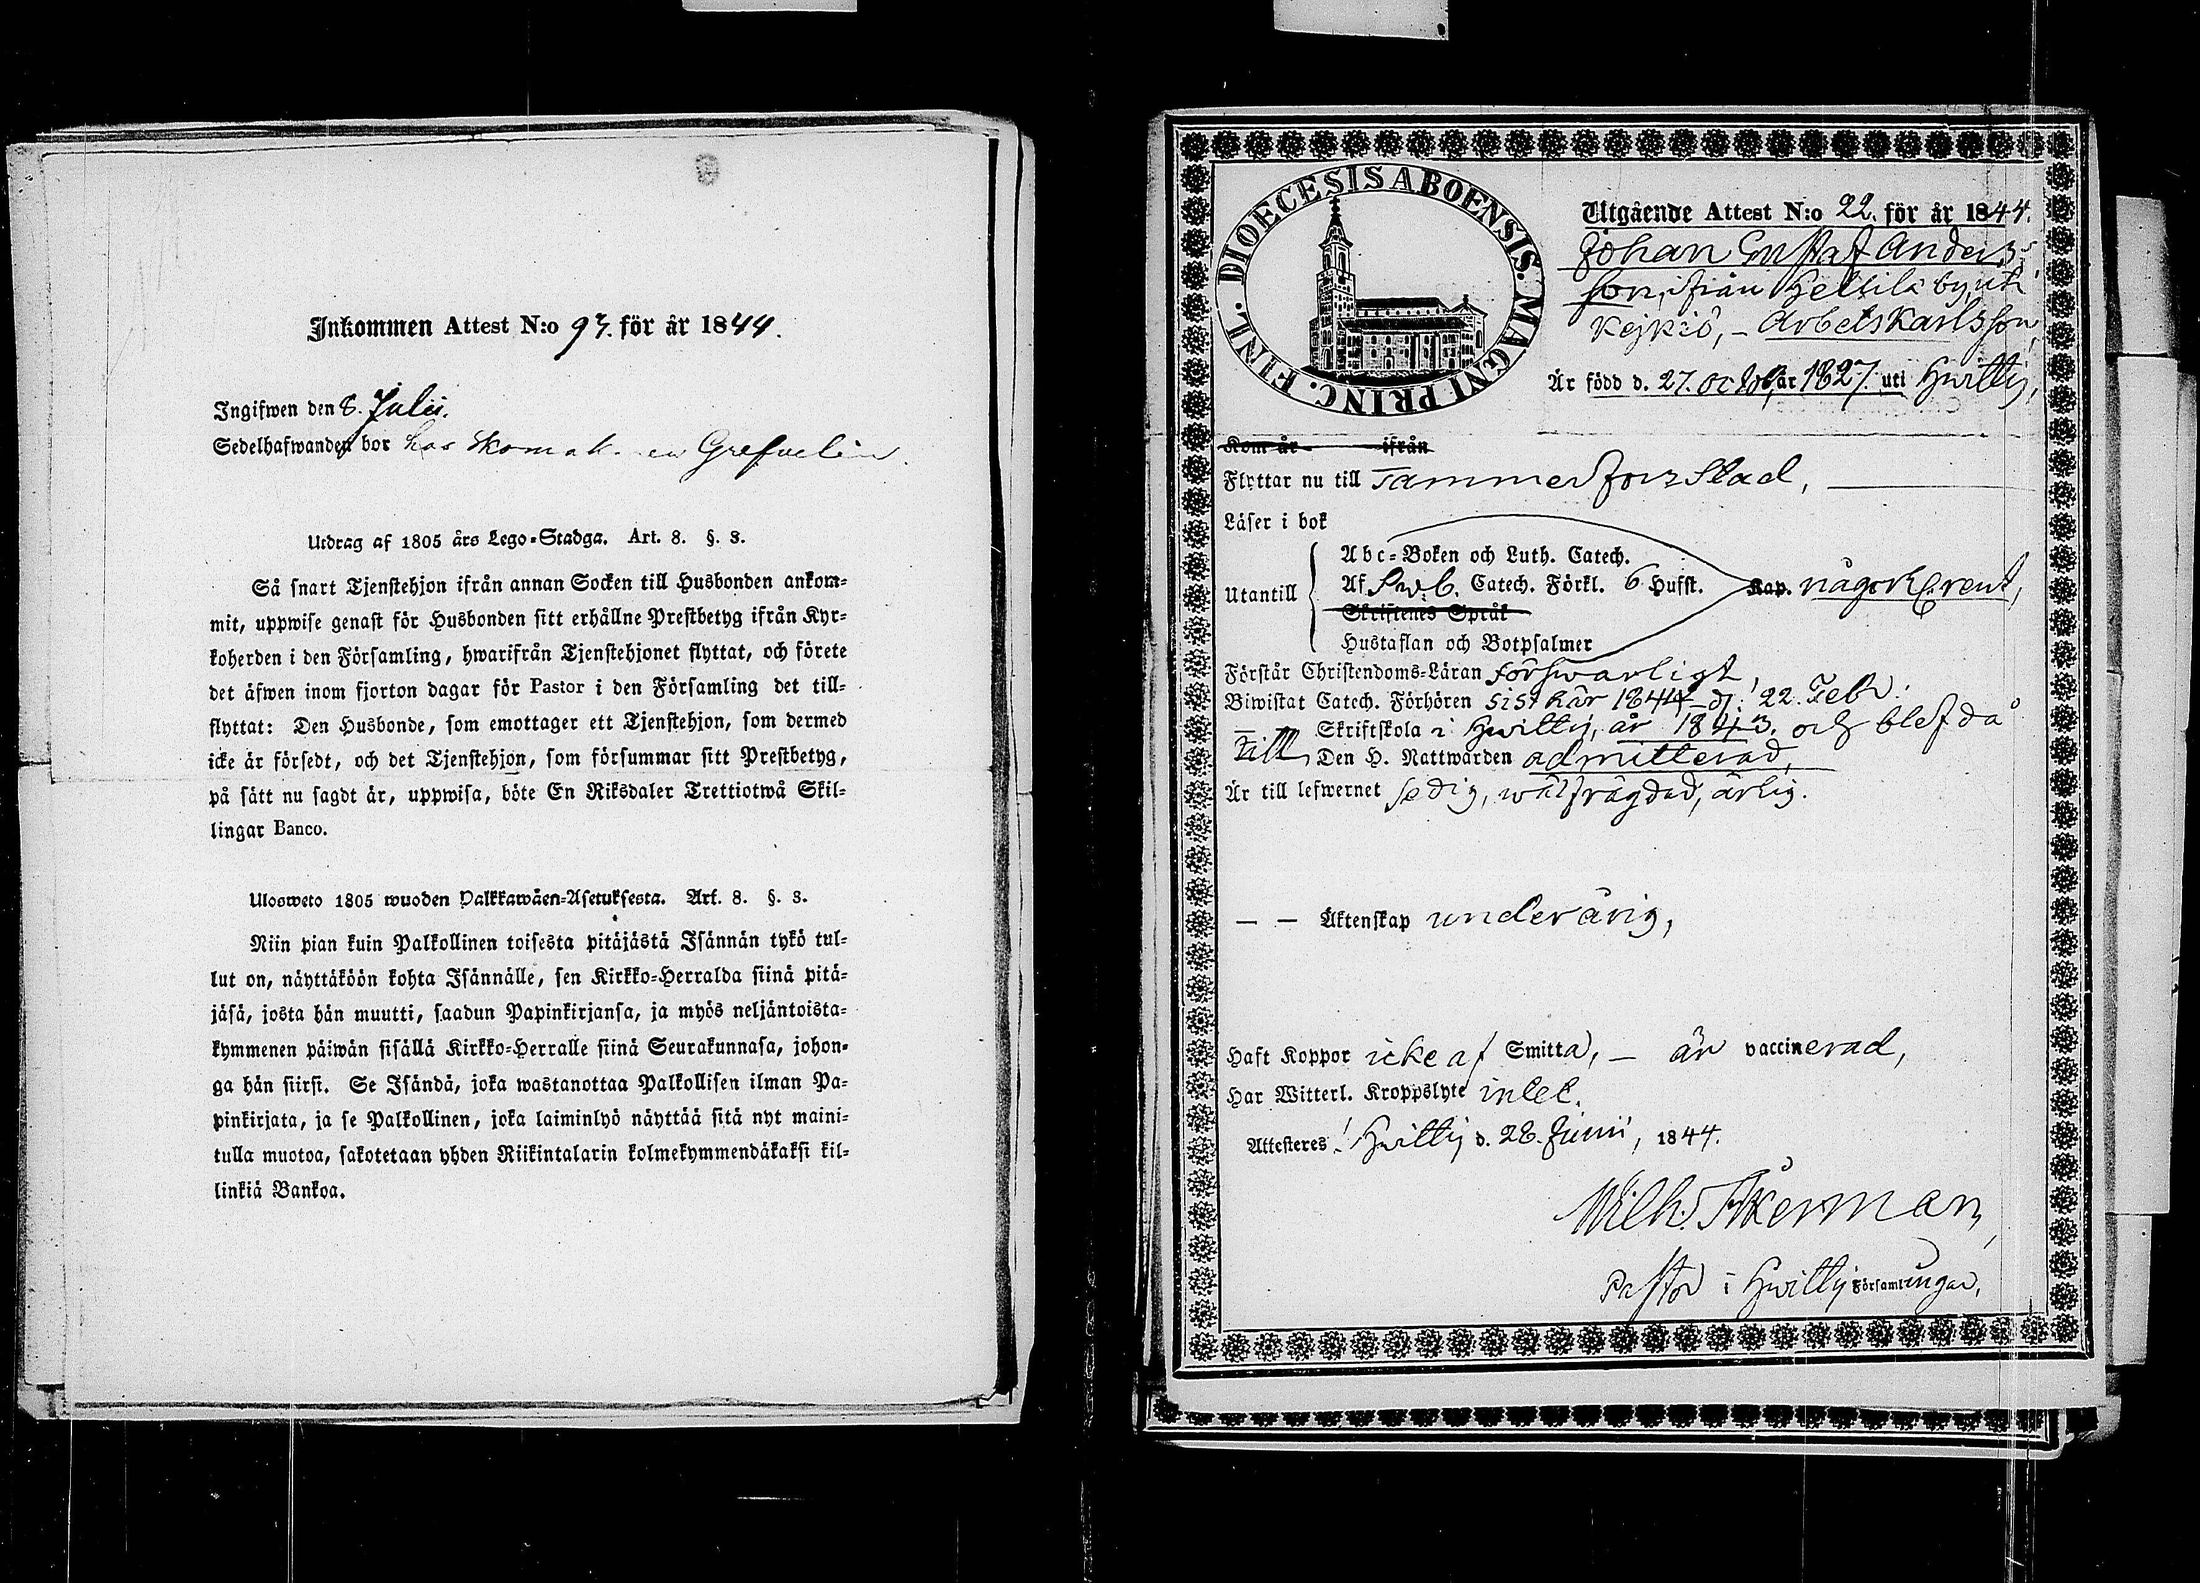 Inkommen Attest N:o 93. för år 1844.
Ingifwen den 8. Julii.
Sedelhafwanden bor hos Skomak. Grefvelin.
Utdrag af 1805 års Lego-Stadga. Art. 8. §. 3.
Så snart Tjenstehjon ifrån annan Socken till Husbonden ankom-
mit, uppwise genast för Husbonden sitt erhållne Prestbetyg ifrån Kyr-
koherden i den Församling, hwarifrån Tjenstehjonet flyttat, och förete
det äfwen inom fjorton dagar för Pastor i den Församling det till-
flyttat: Den Husbonde, som emottager ett Tjenstehjon, som dermed
icke är försedt, och det Tjenstehjon, som försummar sitt Prestbetyg,
på sätt nu sagdt är, uppwisa, böte En Riksdaler Trettiotwå Skil-
lingar Banco.
Ulosweto 1805 wuoden Palkkawäen-Asetuksesta. Art. 8. §. 3.
Niin pian kuin Palkollinen toisesta pitäjästä Isännän tykö tul-
lut on, näyttäköön kohta Isännälle, sen Kirkko-Herralda siinä pitä-
jäsä, josta hän muutti, saadun Papinkirjansa, ja myös neljäntoista-
kymmenen päiwän sisällä Kirkko-Herralle siinä Seurakunnasa, johon-
ga hän siirsi. Se Isändä, joka wastanottaa Palkollisen ilman Pa-
pinkirjata, ja se Palkollinen, joka laiminlyö näyttää sitä nyt maini-
tulla muotoa, sakotetaan yhden Riikintalarin kolmekymmendäkaksi kil-
linkiä Bankoa.
DIOECESIS ABOENSIS. MAGNI PRINC. FINL.
Utgående Attest N:o 22. för år 1844.
Johan Gustaf Anders-
son, ifrån Heltilä by uti
Kejkiö, – Arbetskarlsson,
Är född d. 27. octob. år 1827. uti Hwittis,
Kom år ifrån
Flyttar nu till Tammerfors Stad,
Läser i bok
Abc-Boken och Luth. Catech.
Utantill Af Sweb. Catech. Förkl. 6 Hufst. Kap. någorl.
Skriftenes Språk
Hustaflan och Botpsalmer
Förstår Christendoms-Läran försvarligt,
Biwistat Catech. Förhören sist här 1844 d. 22. Febr.
Skriftskola i Hwittis, år 1843. och blef då
till Den H. Nattwarden admitterad,
Är till lefwernet sedig, wälfrägdad, ärlig.
– – Äktenskap underårig,
Haft Koppor icke af Smitta, – är vaccinerad,
Har Witterl. Kroppslyte intet.
Attesteres! Hwittis d. 28. Junii, 1844.
Wilh. Åkerman,
Pastor i Hwittis Församlingar,